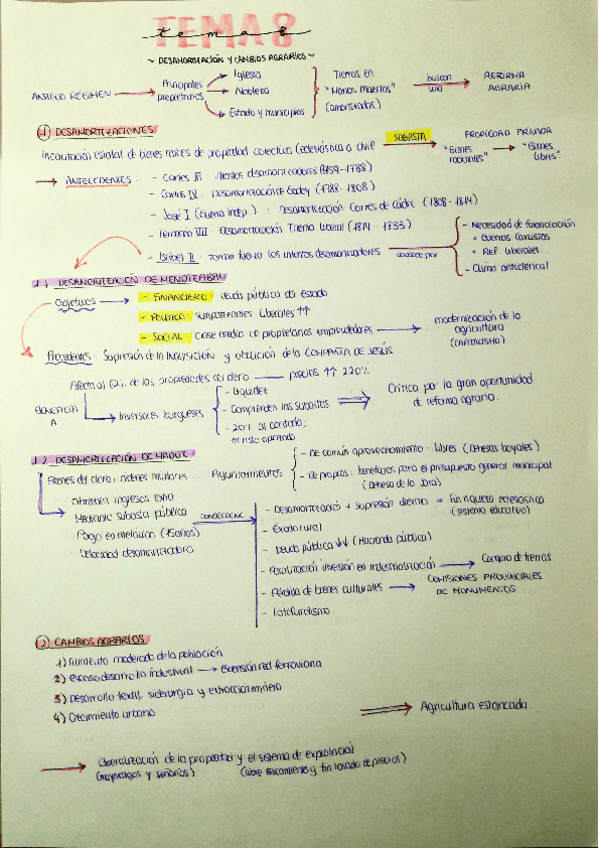 TEMA 8
tema 8
~ DESAMORTIZACIÓN Y CAMBIOS AGRARIOS ~
ANTIGUO RÉGIMEN → Principales propietarios → Iglesia
Nobleza
Estado y municipios
Tierras en "Manos Muertas" (amortizadas)
buscan una → REFORMA AGRARIA
1) DESAMORTIZACIONES
Incautación estatal de bienes raíces de propiedad colectiva (eclesiástica o civil → SUBASTA → "Bienes nacionales" → PROPIEDAD PRIVADA "Bienes libres"
→ ANTECEDENTES: - Carlos III: Intentos desamortizadores (1759-1788)
- Carlos IV: Desamortización de Godoy (1788-1808)
- José I (Guerra Indep.): Desamortización Cortes de Cádiz (1808-1814)
- Fernando VII: Desamortización Trienio Liberal (1814-1833)
- Isabel II: toman fuerza los intentos desamortizadores
- Necesidad de financiación
• Guerras Carlistas
• Ref. liberales
- Clima anticlerical
1.1 DESAMORTIZACIÓN DE MENDIZÁBAL
Objetivos → - FINANCIERO: deuda pública del Estado
- POLÍTICO: Simpatizantes liberales ↑↑
- SOCIAL: clase media de propietarios emprendedores → modernización de la agricultura
Precedentes: Supresión de la Inquisición y abolición de la COMPAÑÍA DE JESÚS
Afecta al 62% de las propiedades del clero → precios ↑↑ 220%
BENEFICIA A → Inversores burgueses
- Liquidez
- Comprenden las subastas
- 20% al contado;
el resto aportado
⇒ Crítica por la gran oportunidad de reforma agraria.
1.2 DESAMORTIZACIÓN DE MADOZ
Bienes del clero, órdenes militares... Ayuntamientos
- De común aprovechamiento: libres (Dehesas boyales)
- De propios: beneficios para el presupuesto general municipal
Obtienen ingresos
Mediante subasta pública
Pago en metálico (15 años)
Velocidad desamortizadora
- Desamortización + supresión diezmos = fin riqueza eclesiástica (sistema educativo)
- Éxodo rural
- Deuda pública ↓↓ (Hacienda pública)
- Paralización inversión en industrialización → Compra de tierras
- Pérdida de bienes culturales → COMISIONES PROVINCIALES DE MONUMENTOS
- Latifundismo.
2) CAMBIOS AGRARIOS
1) Aumento moderado de la población
2) Escaso desarrollo industrial → Extensión red ferroviaria
3) Desarrollo textil, siderurgia y extracción minera
4) Crecimiento urbano
⇒ Agricultura estancada.
→ Liberalización de la propiedad y el sistema de explotación
(mayorazgos y señoríos) (libre arrendamiento y fin tasado de precios)